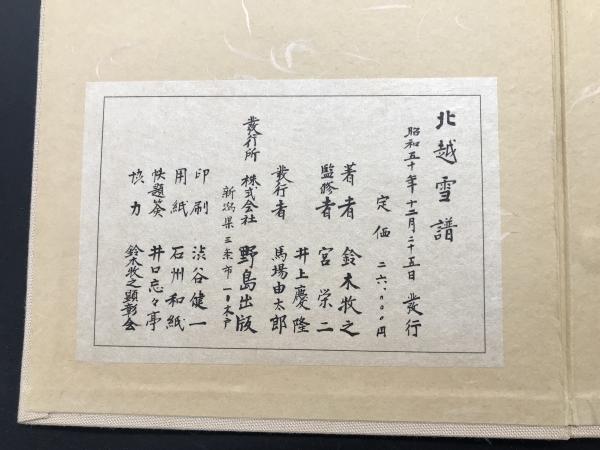 北越雪譜
昭和五十年十二月二十五日 發行
定価 二六、〇〇〇円
著者 鈴木牧之
監修者 宮栄二
井上慶隆
發行者 馬場由太郎
發行所 株式会社 野島出版
新潟県三条市一ノ木戸
印刷 渋谷健一
用紙 石州和紙
帙題簽 井口忘々亭
協力 鈴木牧之顕彰会